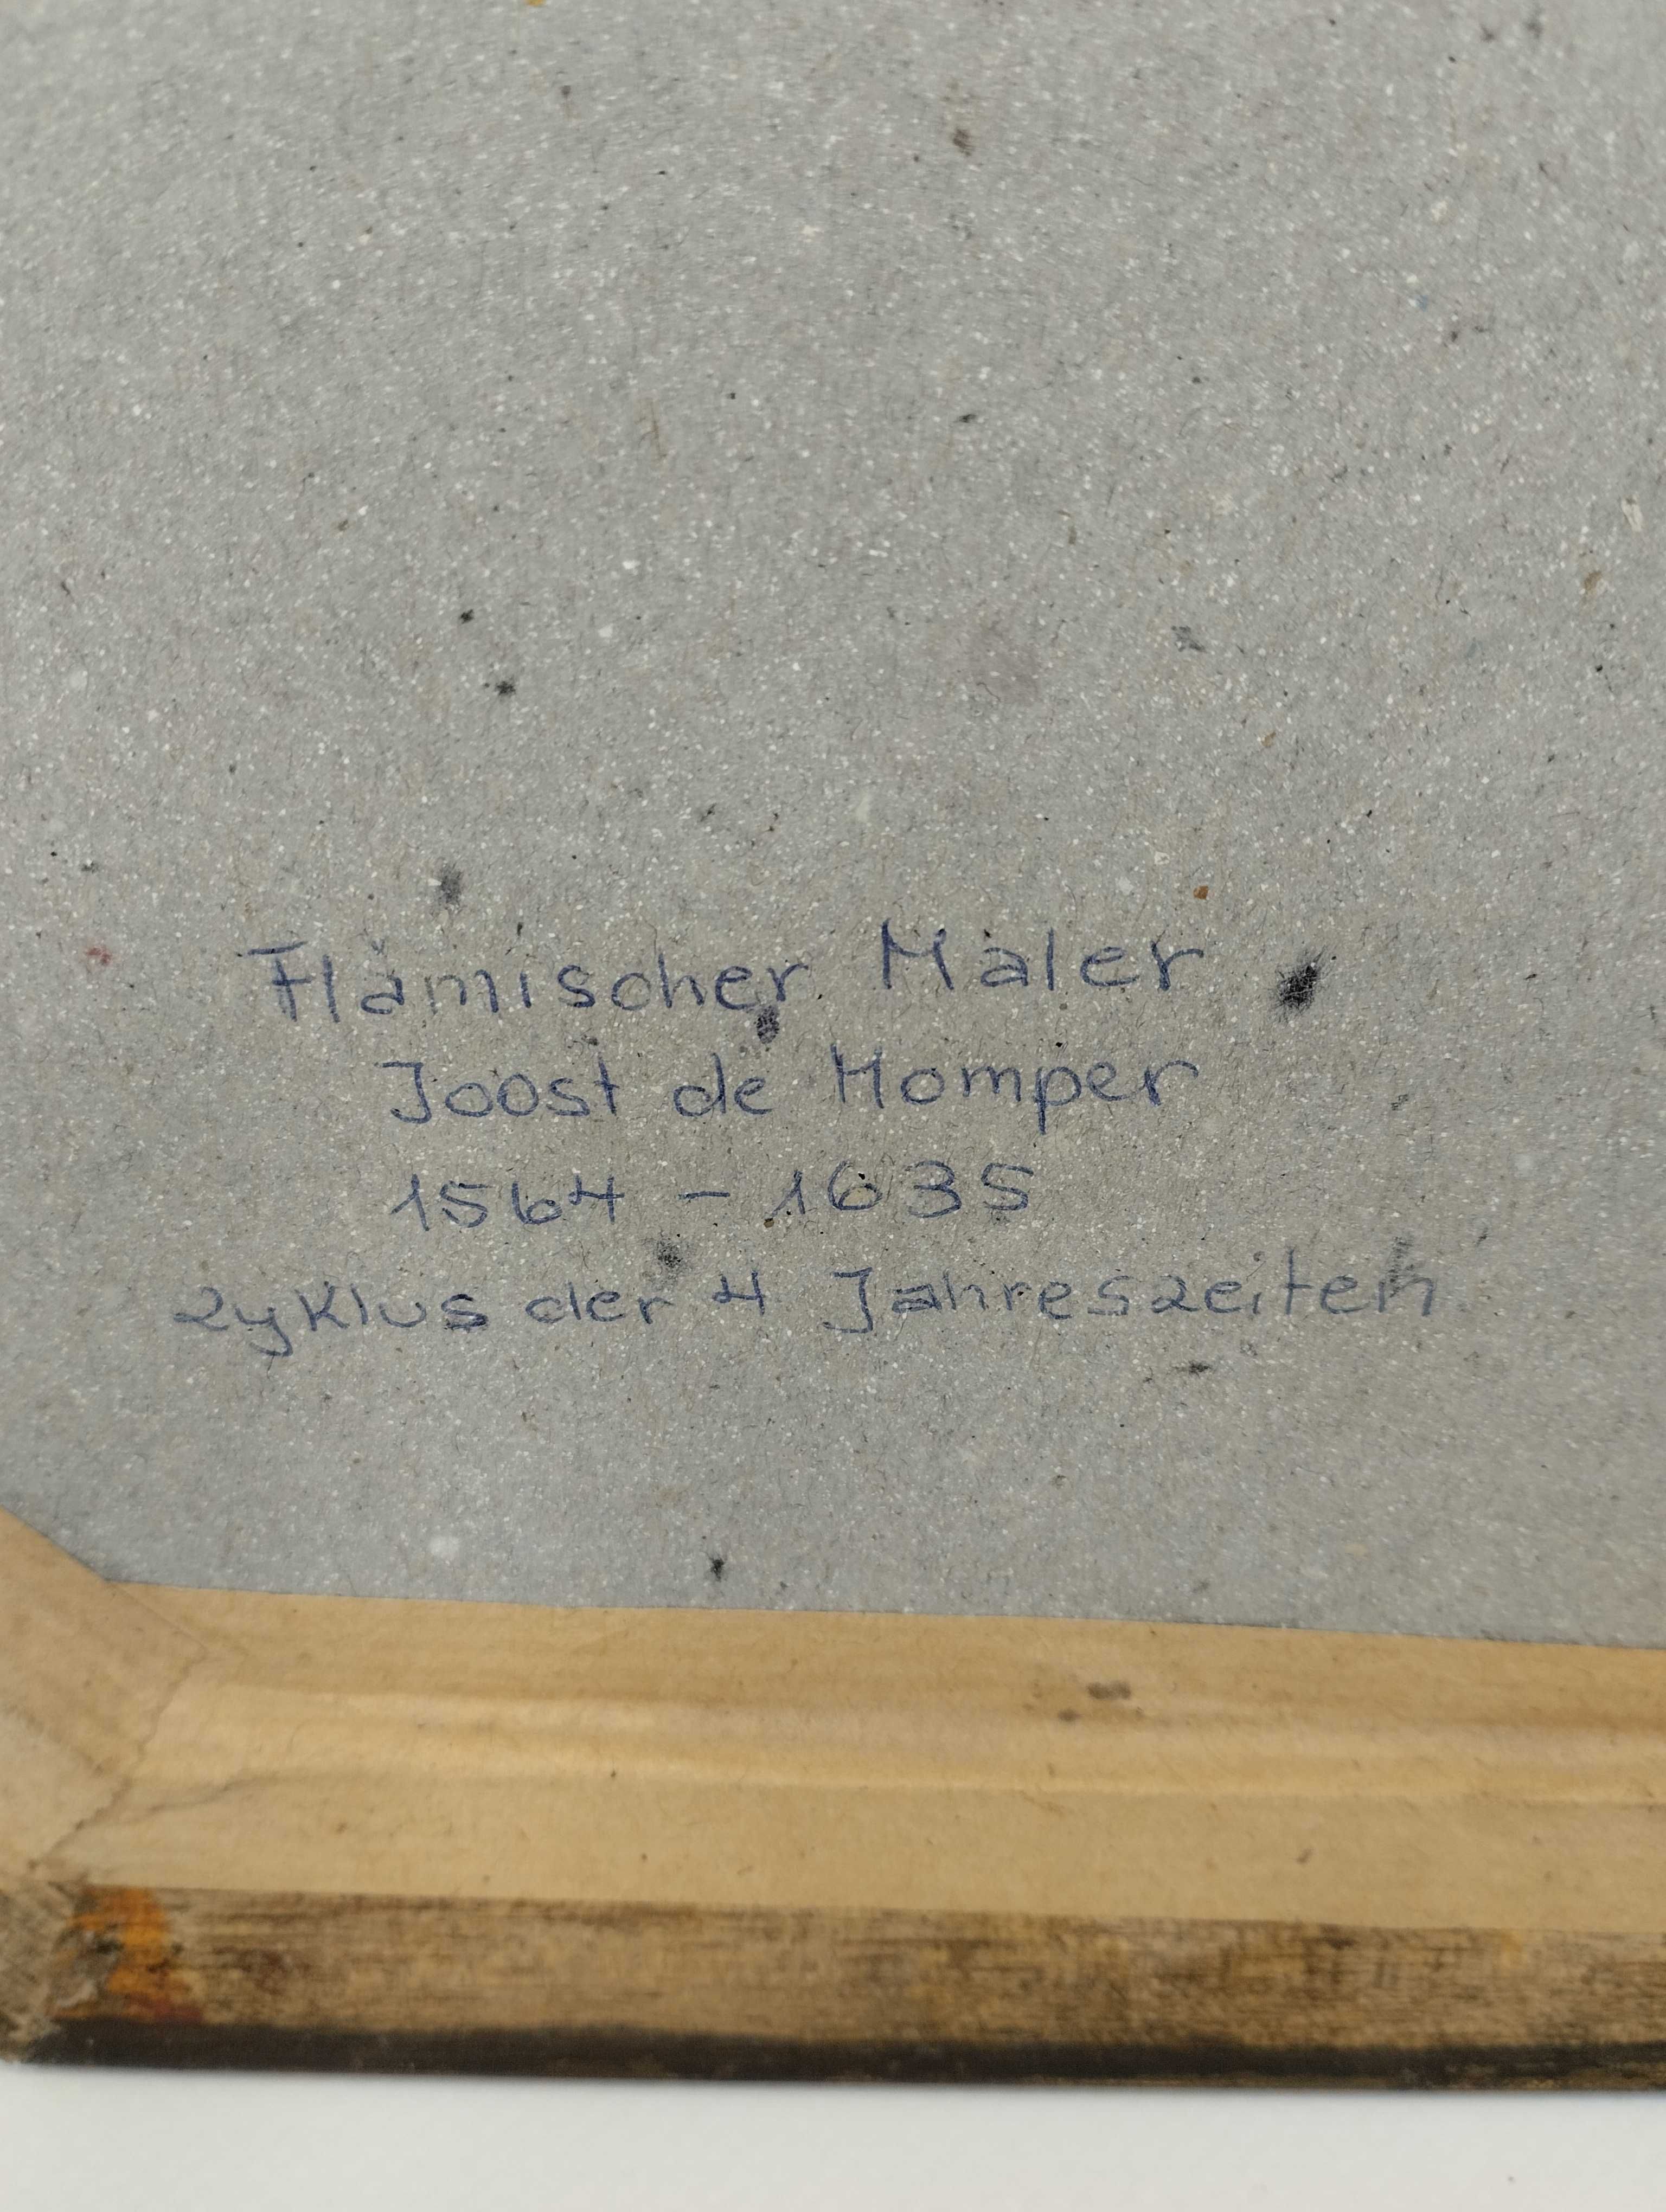 Flämischer Maler
Joost de Momper
1564 - 1635
Zyklus der 4 Jahreszeiten